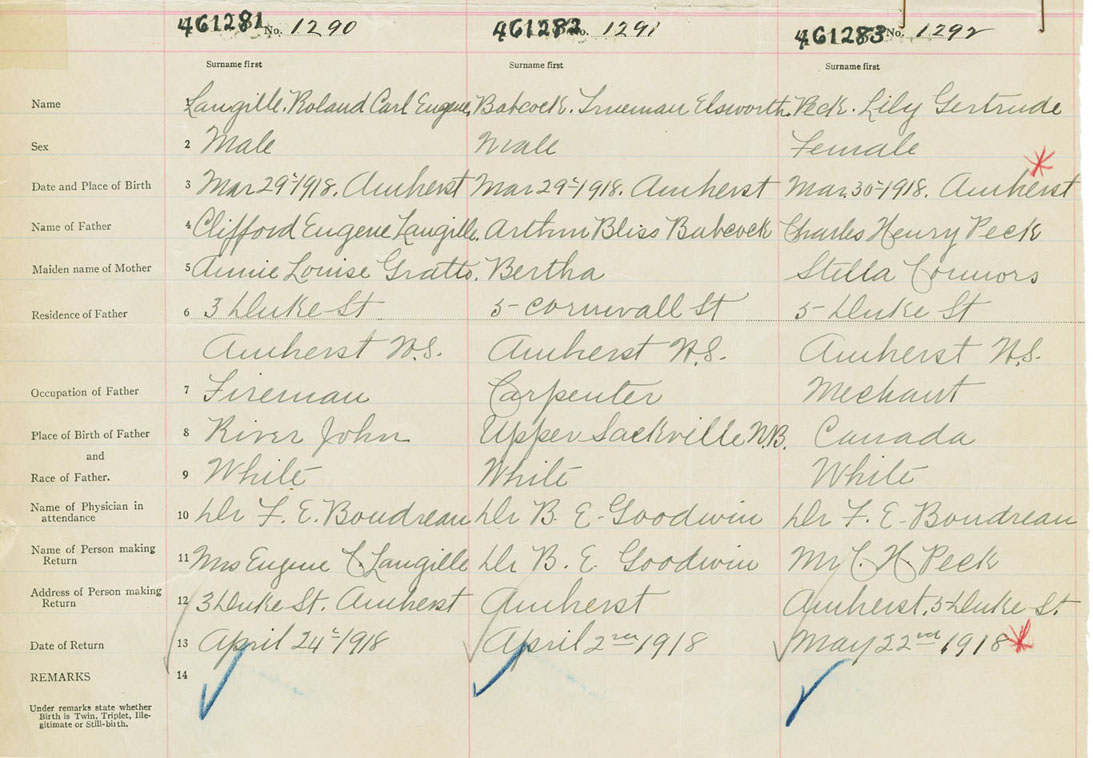 461281 No. 1290 461282 No. 1291 461283 No. 1292
Surname first Surname first Surname first
Name 1 Langille. Roland Carl Eugene, Babcock. Trueman Elsworth. Peck. Lily Gertrude
Sex 2 Male Male Female
Date and Place of Birth 3 Mar 29th 1918. Amherst Mar 29th 1918. Amherst Mar. 30th 1918. Amherst
Name of Father 4 Clifford Eugene Langille. Arthur Bliss Babcock Charles Henry Peck
Maiden name of Mother 5 Annie Louise Gratto. Bertha Stella Connors
Residence of Father 6 3 Duke St 5 Cornwall St 5 Duke St
Amherst N.S. Amherst N.S. Amherst N.S.
Occupation of Father 7 Fireman Carpenter Mechant
Place of Birth of Father 8 River John Upper Sackville N.B. Canada
and
Race of Father. 9 White White White
Name of Physician in
attendance 10 Dr F. E. Boudreau Dr B. E. Goodwin Dr F. E. Boudreau
Name of Person making
Return 11 Mrs Eugene C. Langille Dr B. E. Goodwin Mr C. H. Peck
Address of Person making
Return 12 3 Duke St. Amherst Amherst Amherst. 5 Duke St.
Date of Return 13 April 24th 1918 April 2nd 1918 May 22nd 1918
REMARKS 14
Under remarks state whether
Birth is Twin, Triplet, Ille-
gitimate or Still-birth.